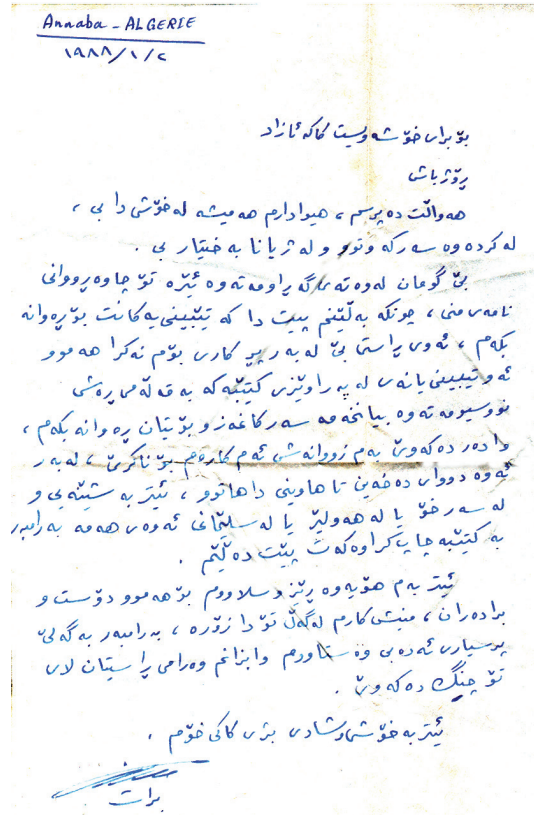 Annaba - ALGERIE
١٩٨٨/١/٢
بۆ برای خۆشەویست کاکە ئازاد
ڕۆژباش
هەواڵت دەپرسم ، هیوادارم هەمیشە لە خۆشی دا بی ،
لە کردەوە سەرکەوتوو و لە ژیانا بەختیار بی .
بێ گومان لەوەتەی گەڕاومەتەوە ئێرە تۆ چاوەڕووانی
نامەی منی ، چونکە بەڵێنم پیت دا کە تێبینی یەکانت بۆ ڕەوانە
بکەم ، ئەوی ڕاستی بێ لەبەر پڕ کاری بۆم نەکرا هەموو
ئەو تێبینی یانەی لە پەراوێزی کتێبەکە بە قەڵەمی ڕەش
نووسیومەتەوە بیانخەمە سەر کاغەز و بۆتیان ڕەوانە بکەم ،
وا دەردەکەوێ بەم زووانەش ئەم کارەم بۆ ناکرێ ، لەبەر
ئەوە دووای دەخەین تا هاوینی داهاتوو ، ئیتر بە شێنەیی و
لە سەر خۆ یا لە هەولێر یا لە سلێمانی ئەوەی هەمە بەرامبەر
بە کتێبە چاپ کراوەکەت پێت دەڵێم .
ئیتر بەم هۆیەوە ڕێز و سلاووم بۆ هەموو دۆست و
برادەران ، منیش کارم لەگەڵ تۆدا زۆرە ، بەرامبەر بە گەلێ
پرسیاری ئەدەبی وەستاوم وابزانم وەرامی ڕاستیان لای
تۆ چنگ دەکەوێ .
ئیتر بە خۆشی و شادی بژی کاکی خۆم .
برات